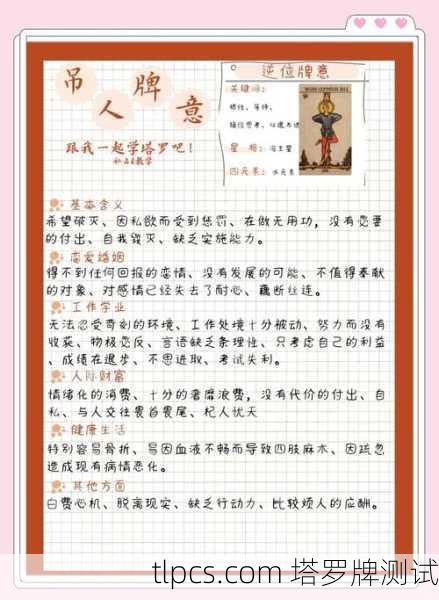 吊人牌意
跟我一起学塔罗吧！
逆位牌意
关键词：
牺牲、等待、
星 相：海王星
四元素：水元素
基本含义
希望破灭、因私欲而受到惩罚、在做无用功，没有必要
的付出、自我毁灭、缺乏实施能力。
恋爱婚姻
得不到任何回报的恋情、没有发展的可能、不值得奉献
的对象、对感情已经失去了耐心、藕断丝连。
工作学业
无法忍受苛刻的环境、工作处境十分被动、努力而没有
收获、物极必反、言语缺乏条理性、只考虑自己的利益
、成绩在退步、不思进取、考试失利。
人际财富
情绪化的消费、十分的奢靡浪费，没有代价的付出、自
私、与人交往畏首畏尾、杞人忧天
健康生活
特别容易骨折、易因血液不畅而导致四肢麻木、因疏忽
造成现有病情恶化。
其他方面
白费心机、脱离现实、缺乏行动力、比较烦人的应酬。
tlpcs.com 塔罗牌测试